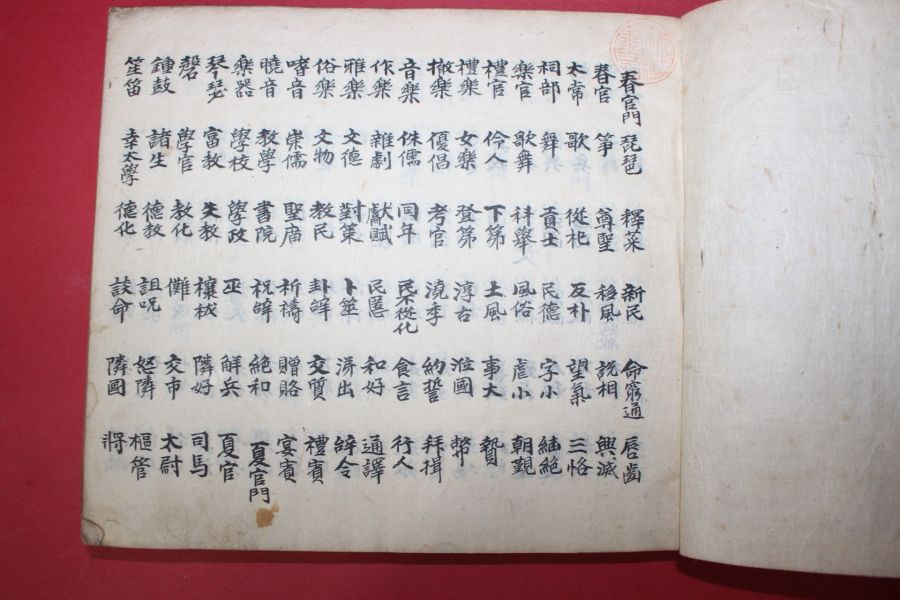 春官門 春官 太常 祠部 樂官 禮官 禮樂 撤樂 音樂 作樂 雅樂 俗樂 嗜音 曉音 樂器 琴瑟 磬 鍾鼓 笙笛
琵琶 箏 歌 舞 歌舞 伶人 女樂 優倡 侏儒 雜劇 文德 文物 崇儒 教學 學校 富教 學官 諸生 幸太學
釋菜 尊聖 從祀 貢士 科舉 下第 登第 考官 同年 獻賦 對策 教民 聖廟 書院 學政 失教 教化 德教 德化
新民 移風 反朴 民德 風俗 土風 淳古 澆季 民不從化 民慝 卜筮 卦 祈禱 祝辝 巫 禳祓 儺 詛呪 談命
命窮通 說相 望氣 字小 虐小 事大 涖國 約誓 食言 和好 出 交質 贈賂 絶和 觧兵 隣好 交市 怒隣 隣國
唇齒 興滅 三恪 繼絶 朝覲 贄 幣 拜揖 行人 通譯 辝令 禮賓 宴賓 夏官門 夏官 司馬 太尉 樞管 將